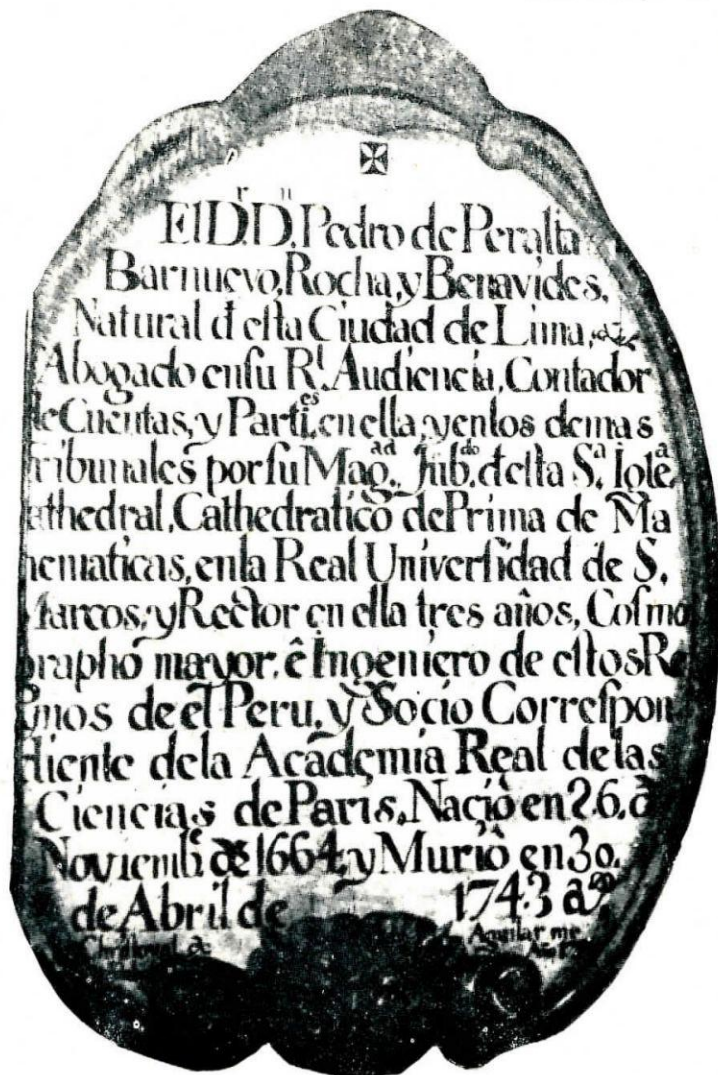 ✠
El D.ʳ D.ⁿ Pedro de Peralta
Barnuevo, Rocha, y Benavides,
Natural đ esta Ciudad de Lima,
Abogado en su R.ˡ Audiencia, Contador
de Cuentas, y Parti.ᵉˢ en ella, y en los demas
Tribunales por su Mag.ᵃᵈ Jub.ᵈᵒ desta S.ᵃ Igle.ᵃ
Cathedral, Cathedratico de Prima de Ma
thematicas, en la Real Universidad de S.
Marcos, y Rector en ella tres años, Cosmo
grapho mayor, ê Ingeniero de estos Re
ynos de el Peru, y Socio Correspon
diente de la Academia Real de las
Ciencias de Paris, Naciô en 26. đ
Noviemb.ᵉ de 1664, y Muriô en 30.
de Abril de 1743 a.ˢ
Christoval de Aguilar me